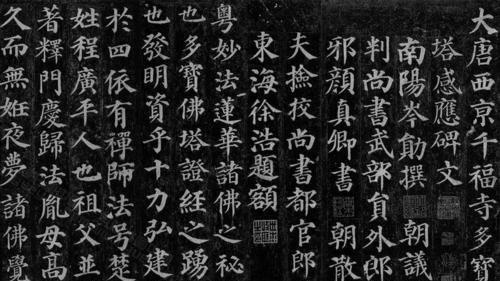 大唐西京千福寺多寶
塔感應碑文
南陽岑勛撰 朝議
判尚書武部貟外郎
邪顏真卿書 朝散
夫撿挍尚書都官郎
東海徐浩題額
粵妙法蓮華諸佛之秘
也多寶佛塔證經之踴
也發明資乎十力弘建
於四依有禪師法号楚
姓程廣平人也祖父並
著釋門慶歸法胤母高
久而無妊夜夢諸佛覺